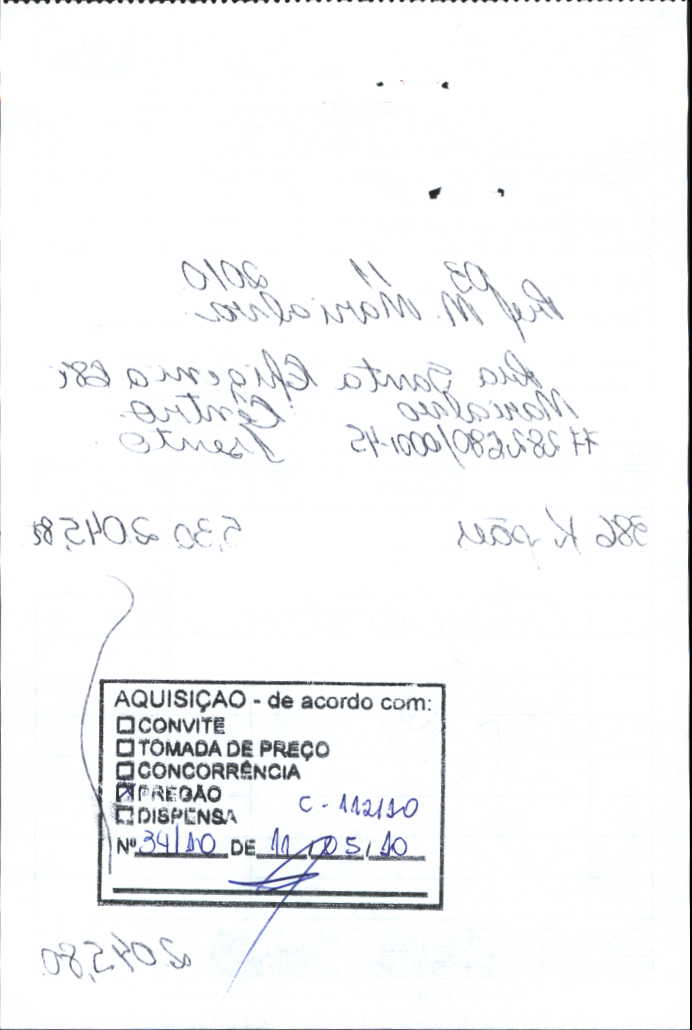 03 11 2010
Pref M. Marialva
Rua Santa Efigenia 68
Marialva Centro
77282680/0001-45 Isento
386 K pães 5,30 2045,80
AQUISIÇAO - de acordo com:
CONVITE
TOMADA DE PREÇO
CONCORRÊNCIA
PREGÃO
DISPENSA C - 112/10
Nº 34/10 DE 11 / 05 / 10
2045,80